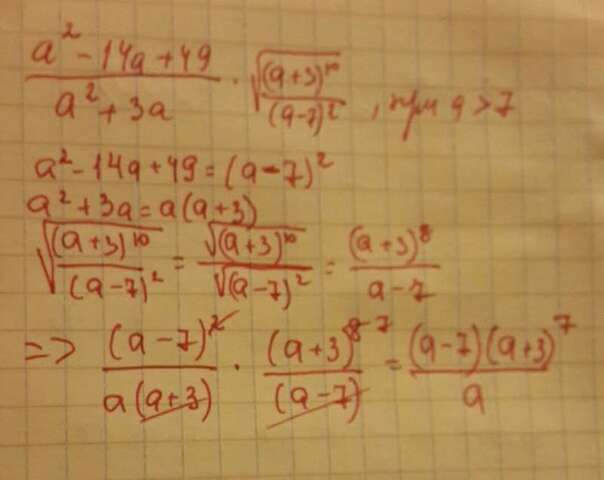 (a² - 14a + 49)/(a² + 3a) · √((a+3)¹⁰/(a-7)²), при a > 7
a² - 14a + 49 = (a-7)²
a² + 3a = a(a+3)
√((a+3)¹⁰/(a-7)²) = √(a+3)¹⁰/√(a-7)² = (a+3)⁸/(a-7)
=> (a-7)²/(a(a+3)) · (a+3)⁸ ⁷/(a-7) = (a-7)(a+3)⁷/a